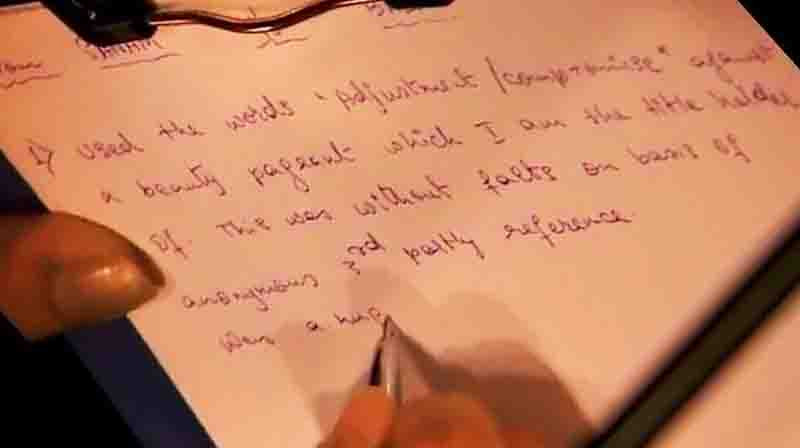 SANAM
1) Used the words "Adjustment / compromise" against
a beauty pageant which I am the title holder
of. This was without facts on basis of
anonymous 3rd party reference.
Was a